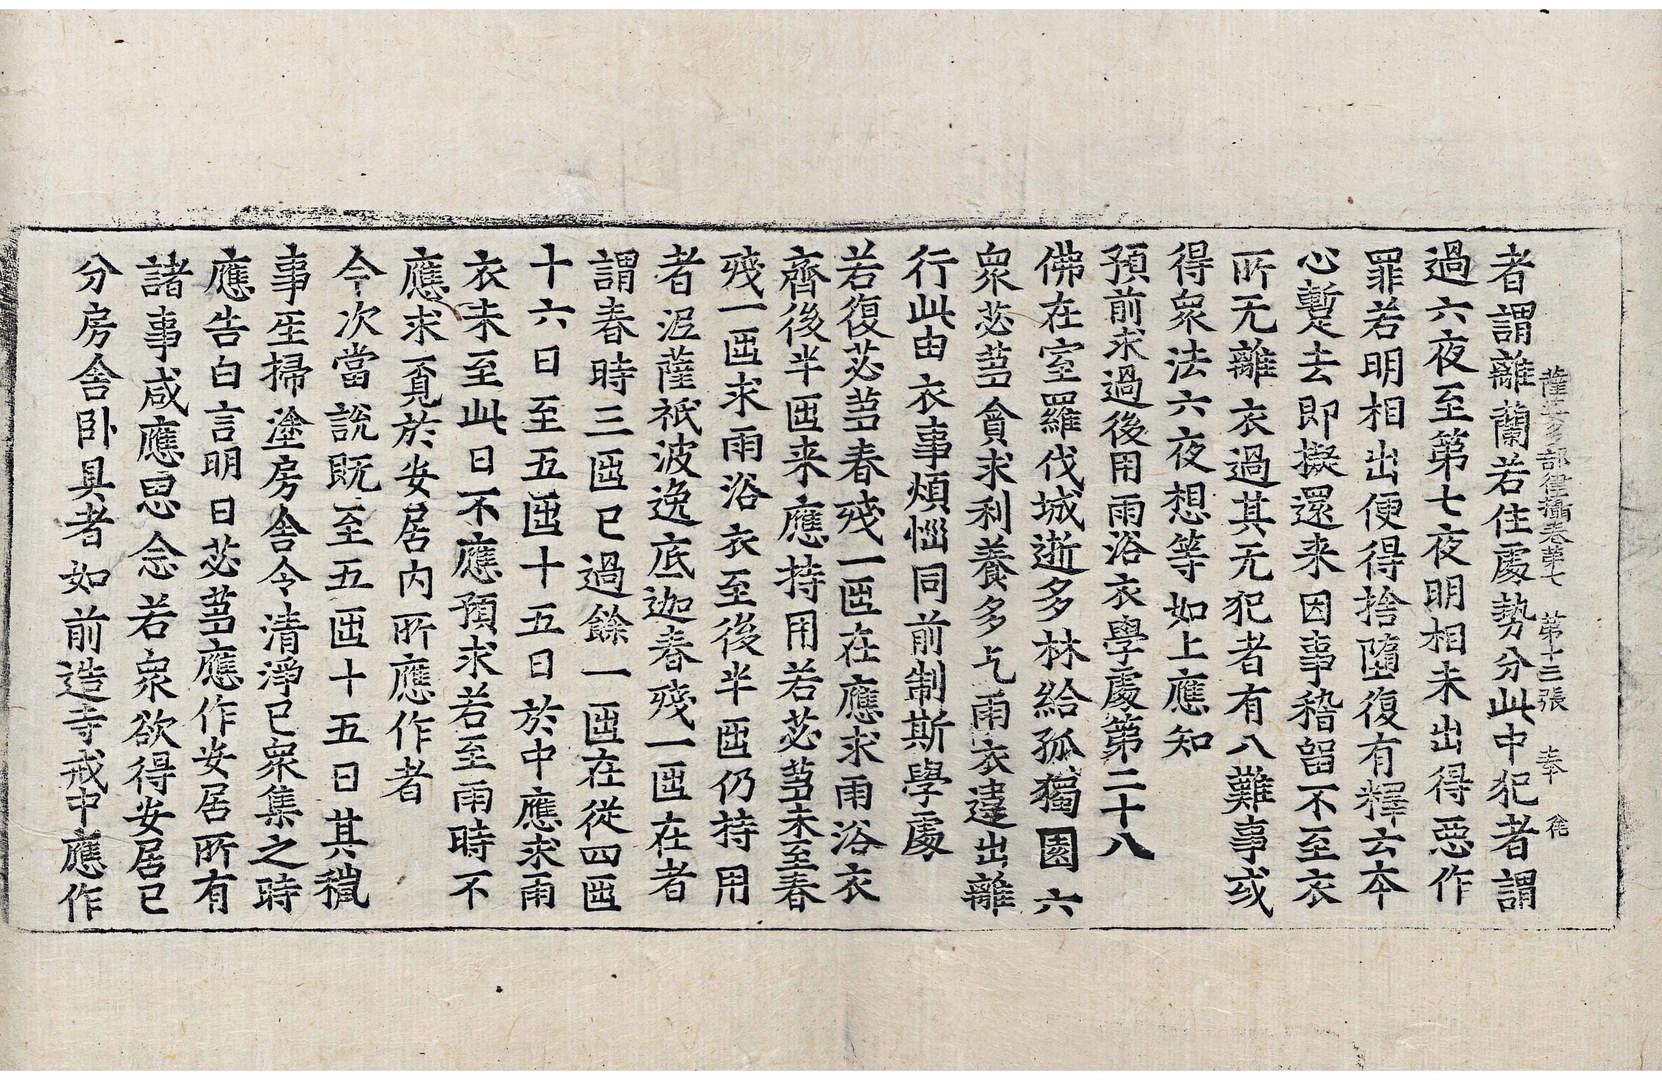 薩婆多部律攝卷第七 第十三張 奉
者謂離蘭若住處勢分此中犯者謂
過六夜至第七夜明相未出得惡作
罪若明相出便得捨墮復有釋云本
心蹔去即擬還来因事稽留不至衣
所无離衣過其无犯者有八難事或
得衆法六夜想等如上應知
預前求過後用雨浴衣學處第二十八
佛在室羅伐城逝多林給孤獨園六
衆苾芻貪求利養多乞雨衣違出離
行此由衣事煩惱同前制斯學處
若復苾芻春殘一𠥱在應求雨浴衣
齊後半𠥱来應持用若苾芻未至春
殘一𠥱求雨浴衣至後半𠥱仍持用
者泥薩祇波逸底迦春殘一𠥱在者
謂春時三𠥱已過餘一𠥱在從四𠥱
十六日至五𠥱十五日於中應求雨
衣未至此日不應預求若至雨時不
應求覓於安居内所應作者
今次當說既至五𠥱十五日其授
事𤯔掃塗房舍令清淨已衆集之時
應告白言明日苾芻應作安居所有
諸事咸應思念若衆欲得安居已
分房舍卧具者如前造寺戒中應作